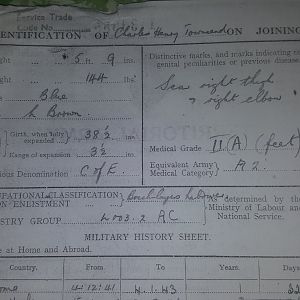 Service Trade
Code No.
ENTIFICATION OF Charles Henry Townsend ON JOINING
ght 5 ft. 9 ins.
ght 144 lbs.
Blue
L Brown
Girth, when fully expanded 38½ ins.
Range of expansion 3½ ins.
ious Denomination C of E.
Distinctive marks, and marks indicating
genital peculiarities or previous disease
Scar right thigh
& right elbow
Medical Grade II (A) (feet)
Equivalent Army Medical Category A2.
UPATIONAL CLASSIFICATION
ON ENLISTMENT Bricklayers Labourer As determined by the
Ministry of Labour and
National Service.
STRY GROUP L003.2 AC
MILITARY HISTORY SHEET.
e at Home and Abroad.
Country. From To Years Days
ome 4.12.41 4.1.43 1 32